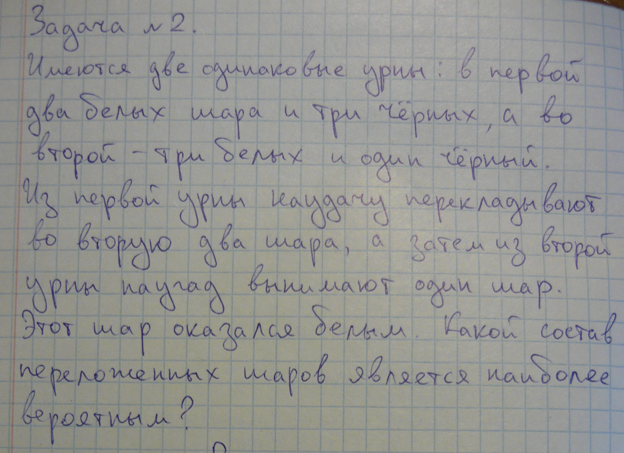 Задача №2.
Имеются две одинаковые урны: в первой
два белых шара и три чёрных, а во
второй – три белых и один чёрный.
Из первой урны наудачу перекладывают
во вторую два шара, а затем из второй
урны наугад вынимают один шар.
Этот шар оказался белым. Какой состав
переложенных шаров является наиболее
вероятным?